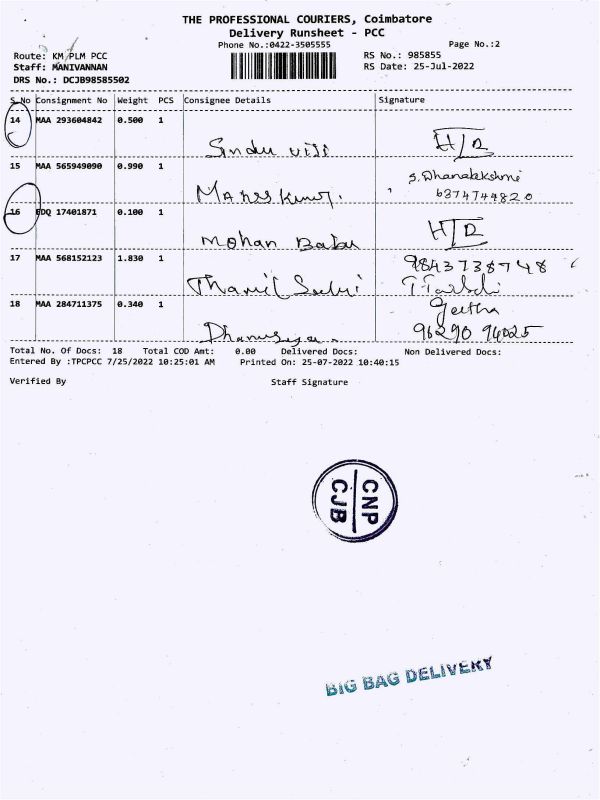 THE PROFESSIONAL COURIERS, Coimbatore
Delivery Runsheet - PCC
Phone No.:0422-3505555
Page No.:2
Route: KM/PLM PCC
RS No.: 985855
Staff: MANIVANNAN
RS Date: 25-Jul-2022
DRS No.: DCJB98585502
S.No Consignment No Weight PCS Consignee Details Signature
14 MAA 293604842 0.500 1
Sindu viji H/D
15 MAA 565949090 0.990 1
S. Dhanalekshmi
6374744820
16 EDQ 17401871 0.100 1
Mohan Babu H/D
17 MAA 568152123 1.830 1
9843738748
Thamil Selvi
18 MAA 284711375 0.340 1
Geetha
96290 94025
Total No. Of Docs: 18 Total COD Amt: 0.00 Delivered Docs: Non Delivered Docs:
Entered By :TPCPCC 7/25/2022 10:25:01 AM Printed On: 25-07-2022 10:40:15
Verified By Staff Signature
CNP
CJB
BIG BAG DELIVERY